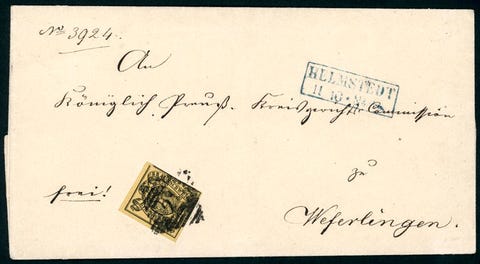 No 3924.
An
HELMSTEDT
Königlich Preuß. Kreisgerichts Commission
zu
frei!
Weferlingen.